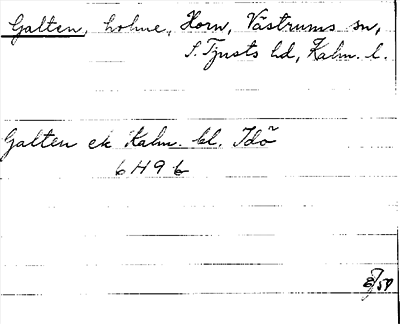 Galten, holme, Horn, Västrums sn,
S. Tjusts hd, Kalm. l.
Galten ek Kalm. bl. Idö
6 H 9 b